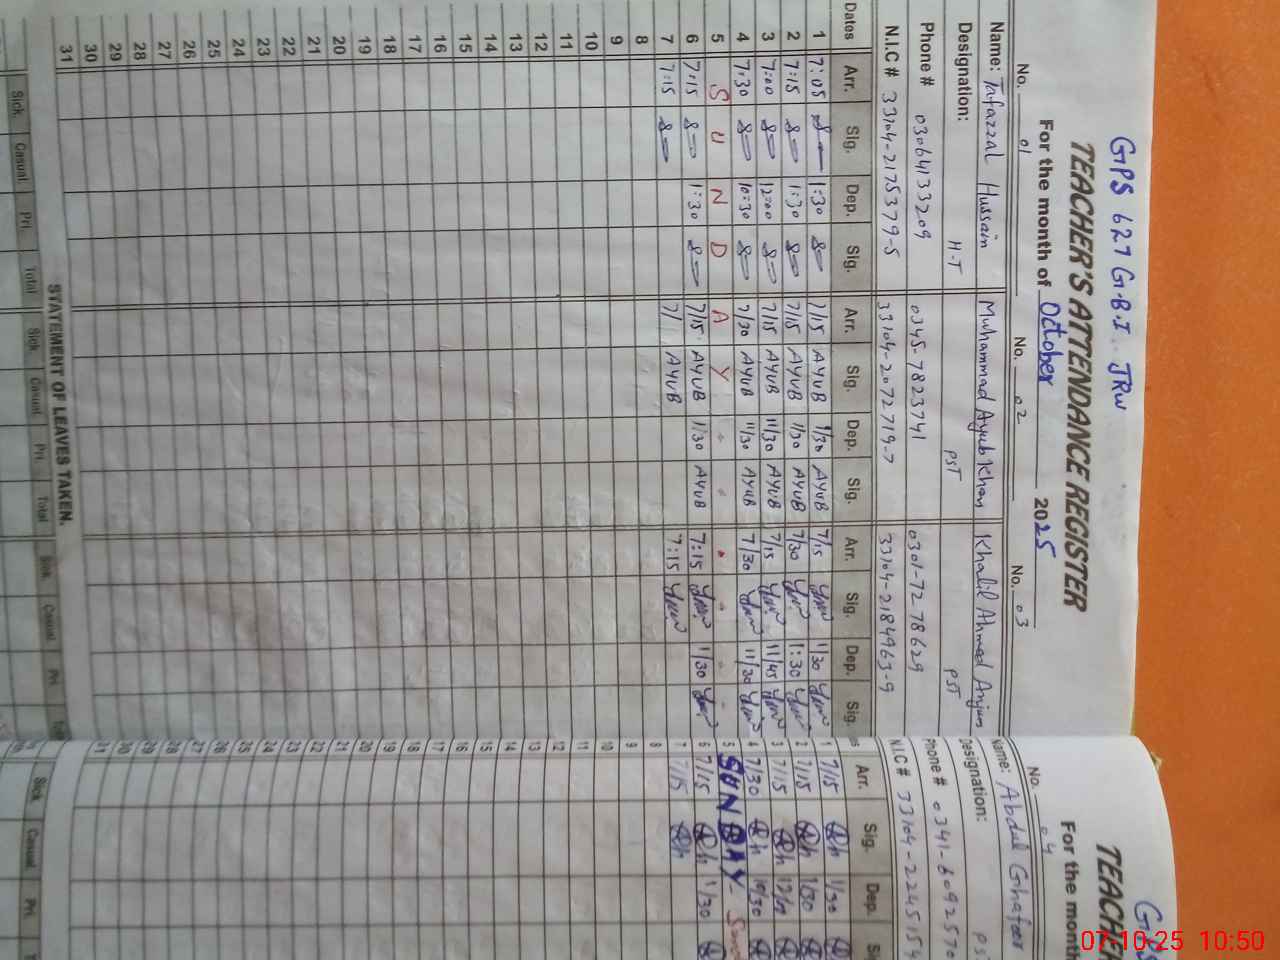 GPS 627 G.B.I. JRW
TEACHER'S ATTENDANCE REGISTER
For the month of October 2025
No. 01 No. 02 No. 03
Name: Tafazzal Hussain Muhammad Ayub Khan Khalil Ahmad Anjum
Designation: H-T PST PST
Phone # 03064133209 0345-7823741 0301-7278629
N.I.C # 33104-2175379-5 33104-2072719-7 33104-2184963-9
Dates Arr. Sig. Dep. Sig. Arr. Sig. Dep. Sig. Arr. Sig. Dep. Sig.
1 7:05 1:30 7/15 AYUB 1/30 AYUB 7/15 1/30
2 7:15 1:30 7/15 AYUB 1/30 AYUB 7/30 1:30
3 7:00 12:00 7/15 AYUB 11/30 AYUB 7/15 11/45
4 7:30 10:30 7/30 AYUB 11/30 AYUB 7/30 11/30
5 S U N D A Y
6 7:15 1:30 7/15 AYUB 1/30 AYUB 7:15 1/30
7 7:15 7/ AYUB 7:15
8
9
10
11
12
13
14
15
16
17
18
19
20
21
22
23
24
25
26
27
28
29
30
31
STATEMENT OF LEAVES TAKEN.
Sick Casual Pri. Total Sick Casual Pri. Total Sick Casual Pri.
GPS
TEACHER
For the month
No. 04
Name: Abdul Ghafoor
Designation:
Phone # 0341-6092570
N.I.C # 33104-2245154
Arr. Sig. Dep.
1 7/15 1/30
2 7/15 1/30
3 7/15
4 7/30 10/30
5 SUNDAY
6 7/15 1/30
7 7/15
8
9
10
11
12
13
14
15
16
17
18
19
20
21
22
23
24
25
26
27
28
29
30
31
Sick Casual Pri.
07-10-25 10:50